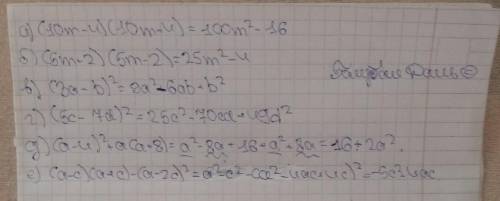 а) (10m-4)(10m-4)=100m²-16
б) (5m-2)(5m-2)=25m²-4
в) (3a-b)²=9a²-6ab+b²
г) (5c-7d)²=25c²-70cd+49d²
д) (a-4)²+a(a+8)=a²-8a+16+a²+8a=16+2a².
е) (a-c)(a+c)-(a-2c)²=a²-c²-(a²-4ac+4c)²=-5c²+4ac